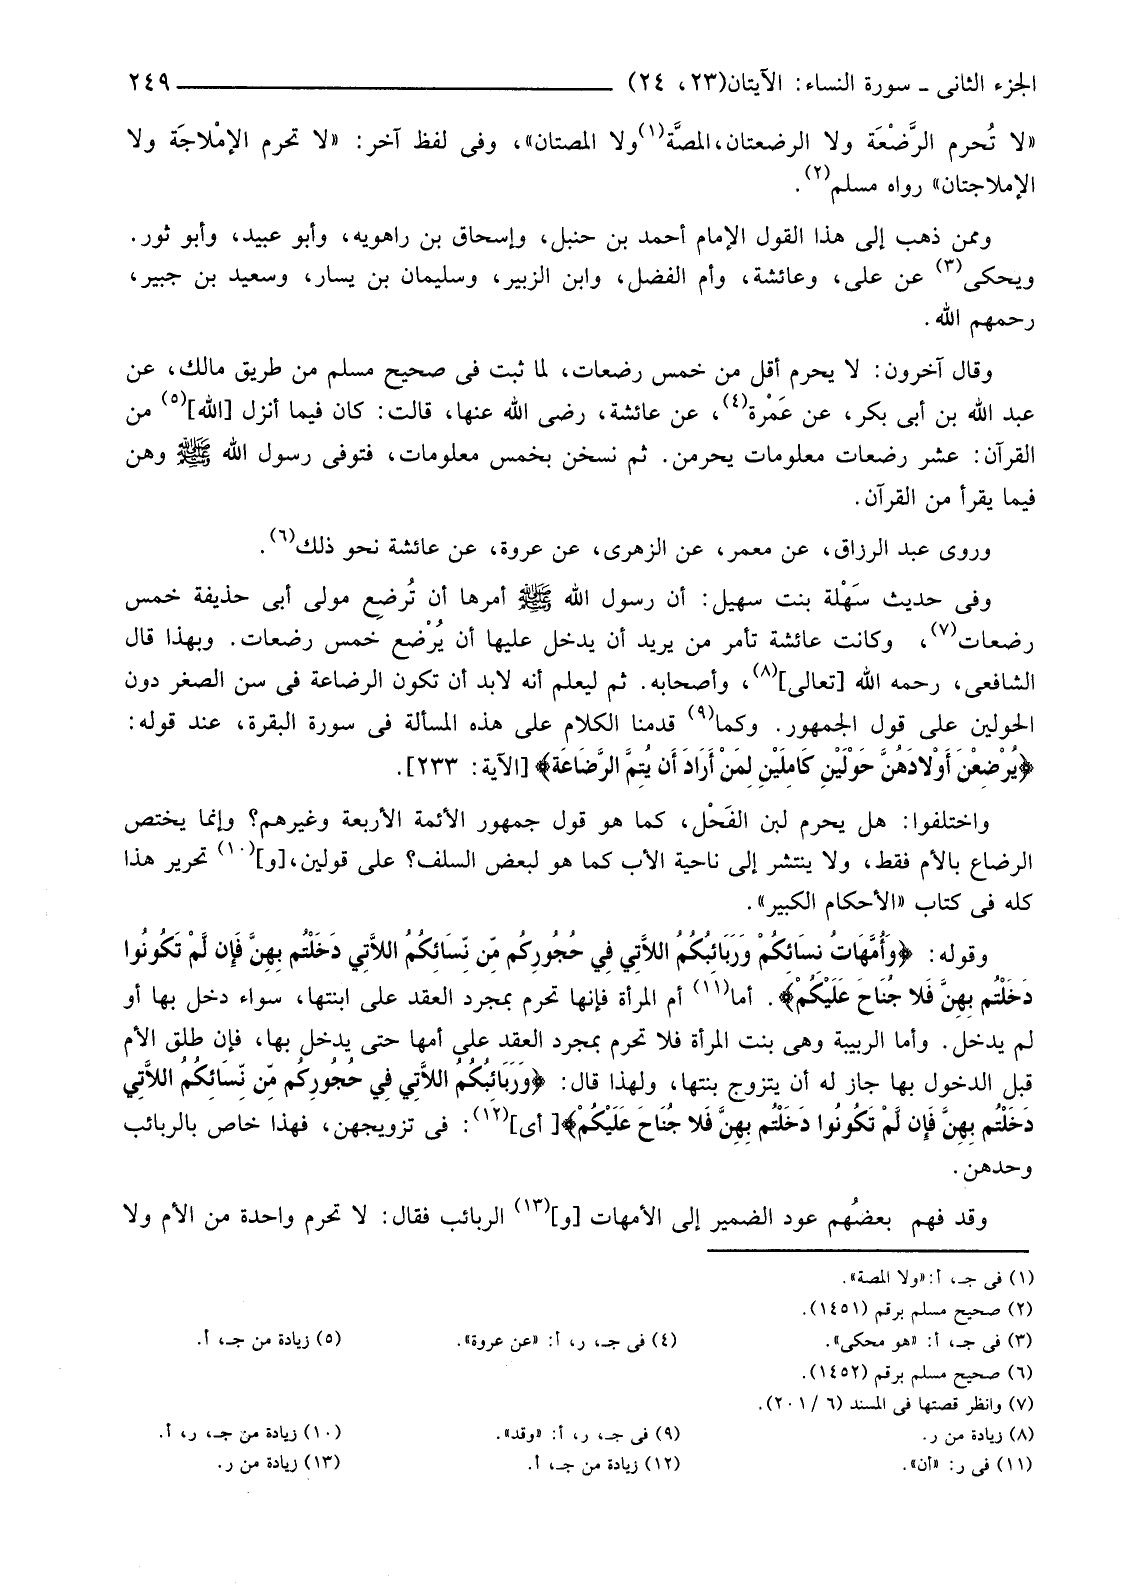 الجزء الثانى ـ سورة النساء: الآيتان(٢٣، ٢٤) ٢٤٩
«لا تُحرم الرَّضْعَة ولا الرضعتان،المصَّة(١)ولا المصتان»، وفى لفظ آخر: «لا تحرم الإمْلاجَة ولا
الإملاجتان» رواه مسلم(٢).
وممن ذهب إلى هذا القول الإمام أحمد بن حنبل، وإسحاق بن راهويه، وأبو عبيد، وأبو ثور.
ويحكى(٣) عن على، وعائشة، وأم الفضل، وابن الزبير، وسليمان بن يسار، وسعيد بن جبير،
رحمهم الله.
وقال آخرون: لا يحرم أقل من خمس رضعات، لما ثبت فى صحيح مسلم من طريق مالك، عن
عبد الله بن أبى بكر، عن عَمْرة(٤)، عن عائشة، رضى الله عنها، قالت: كان فيما أنزل [الله](٥) من
القرآن: عشر رضعات معلومات يحرمن. ثم نسخن بخمس معلومات، فتوفى رسول الله ﷺ وهن
فيما يقرأ من القرآن.
وروى عبد الرزاق، عن معمر، عن الزهرى، عن عروة، عن عائشة نحو ذلك(٦).
وفى حديث سَهْلة بنت سهيل: أن رسول الله ﷺ أمرها أن تُرضِع مولى أبى حذيفة خمس
رضعات(٧)، وكانت عائشة تأمر من يريد أن يدخل عليها أن يُرْضع خمس رضعات. وبهذا قال
الشافعى، رحمه الله [تعالى](٨)، وأصحابه. ثم ليعلم أنه لابد أن تكون الرضاعة فى سن الصغر دون
الحولين على قول الجمهور. وكما(٩) قدمنا الكلام على هذه المسألة فى سورة البقرة، عند قوله:
﴿يُرْضِعْنَ أَوْلادَهُنَّ حَوْلَيْنِ كَامِلَيْنِ لِمَنْ أَرَادَ أَن يُتِمَّ الرَّضَاعَةَ﴾ [الآية: ٢٣٣].
واختلفوا: هل يحرم لبن الفَحْل، كما هو قول جمهور الأئمة الأربعة وغيرهم؟ وإنما يختص
الرضاع بالأم فقط، ولا ينتشر إلى ناحية الأب كما هو لبعض السلف؟ على قولين،[و](١٠) تحرير هذا
كله فى كتاب «الأحكام الكبير».
وقوله: ﴿وَأُمَّهَاتُ نِسَائِكُمْ وَرَبَائِبُكُمُ اللاَّتِي فِي حُجُورِكُم مِّن نِّسَائِكُمُ اللاَّتِي دَخَلْتُم بِهِنَّ فَإِن لَّمْ تَكُونُوا
دَخَلْتُم بِهِنَّ فَلا جُنَاحَ عَلَيْكُمْ﴾. أما(١١) أم المرأة فإنها تحرم بمجرد العقد على ابنتها، سواء دخل بها أو
لم يدخل. وأما الربيبة وهى بنت المرأة فلا تحرم بمجرد العقد على أمها حتى يدخل بها، فإن طلق الأم
قبل الدخول بها جاز له أن يتزوج بنتها، ولهذا قال: ﴿وَرَبَائِبُكُمُ اللاَّتِي فِي حُجُورِكُم مِّن نِّسَائِكُمُ اللاَّتِي
دَخَلْتُم بِهِنَّ فَإِن لَّمْ تَكُونُوا دَخَلْتُم بِهِنَّ فَلا جُنَاحَ عَلَيْكُمْ﴾[ أى](١٢): فى تزويجهن، فهذا خاص بالربائب
وحدهن.
وقد فهم بعضُهم عود الضمير إلى الأمهات [و](١٣) الربائب فقال: لا تحرم واحدة من الأم ولا
(١) فى جـ، أ:«ولا المصة».
(٢) صحيح مسلم برقم (١٤٥١).
(٣) فى جـ، أ: «هو محكى». (٤) فى جـ، ر، أ: «عن عروة». (٥) زيادة من جـ، أ.
(٦) صحيح مسلم برقم (١٤٥٢).
(٧) وانظر قصتها فى المسند (٦/ ٢٠١).
(٨) زيادة من ر. (٩) فى جـ، ر، أ: «وقد». (١٠) زيادة من جـ، ر، أ.
(١١) فى ر: «أن». (١٢) زيادة من جـ، أ. (١٣) زيادة من ر.